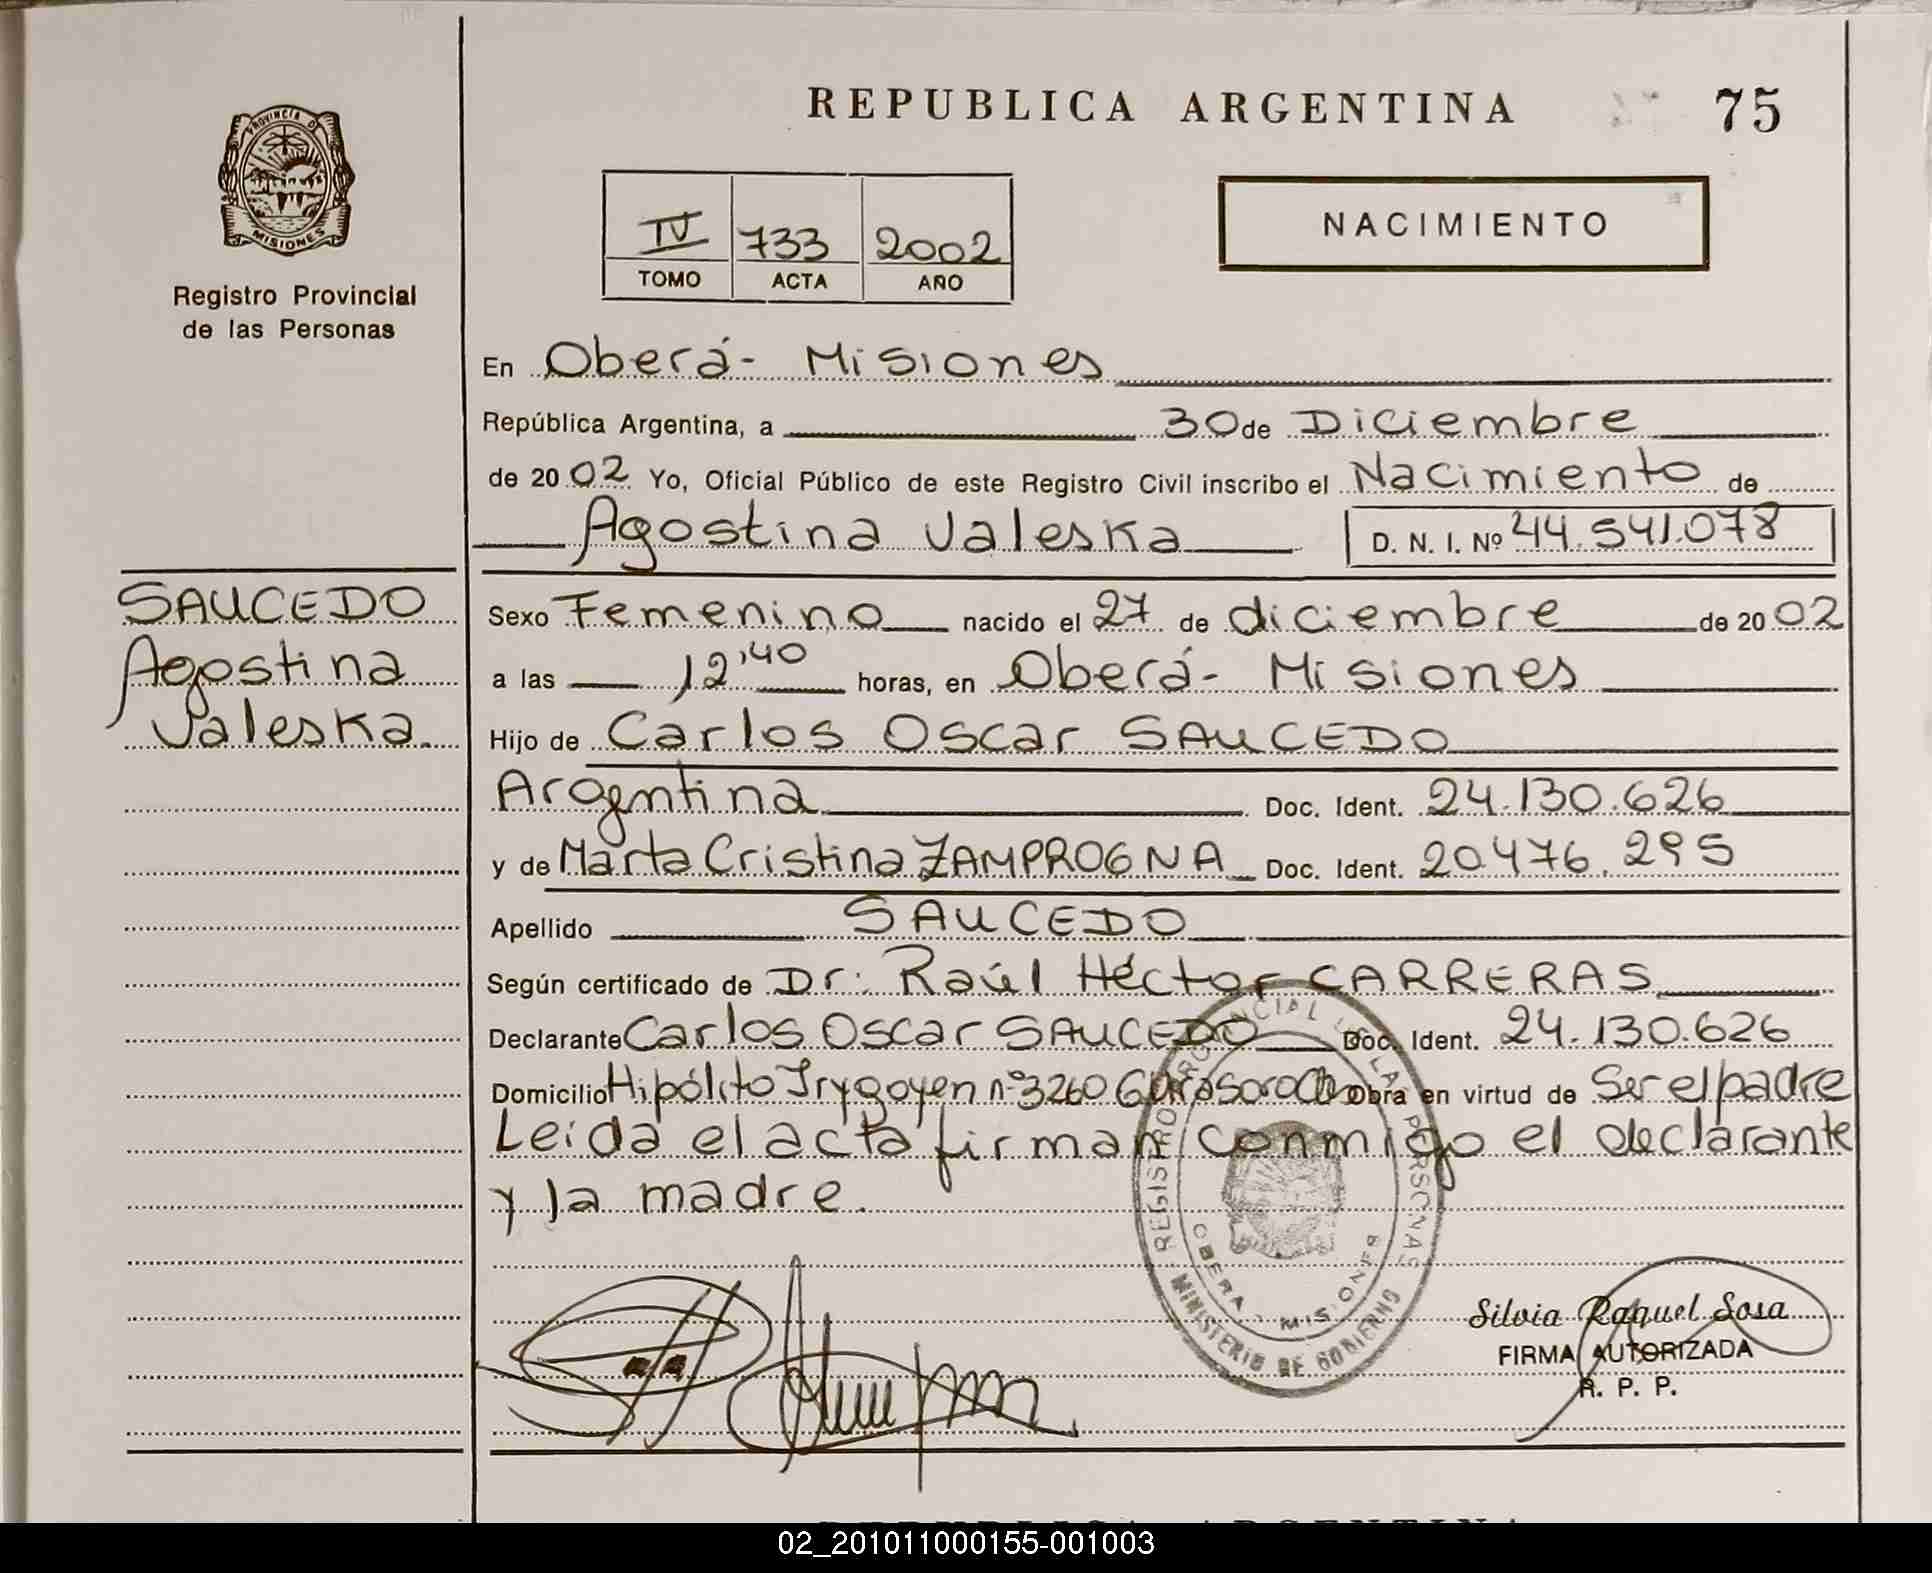 REPUBLICA ARGENTINA 75
PROVINCIA DE MISIONES
Registro Provincial
de las Personas
IV 733 2002
TOMO ACTA AÑO
NACIMIENTO
En Oberá- Misiones
República Argentina, a 30 de Diciembre
de 2002 Yo, Oficial Público de este Registro Civil inscribo el Nacimiento de
Agostina Valeska D. N. I. Nº 44.541.078
SAUCEDO
Agostina
Valeska.
Sexo Femenino nacido el 27 de diciembre de 2002
a las 12,40 horas, en Oberá- Misiones
Hijo de Carlos Oscar SAUCEDO
Argentina Doc. Ident. 24.130.626
y de Marta Cristina ZAMPROGNA Doc. Ident. 20.476.295
Apellido SAUCEDO
Según certificado de Dr. Raúl Héctor CARRERAS
Declarante Carlos Oscar SAUCEDO Doc. Ident. 24.130.626
Domicilio Hipólito Irygoyen nº 3260 Obra en virtud de Ser el padre
Leída el acta firman conmigo el declarante
y la madre.
REGISTRO PROVINCIAL DE LAS PERSONAS
OBERA - MISIONES
MINISTERIO DE GOBIERNO
Silvia Raquel Sosa
FIRMA AUTORIZADA
R. P. P.
REPUBLICA ARGENTINA
02_201011000155-001003